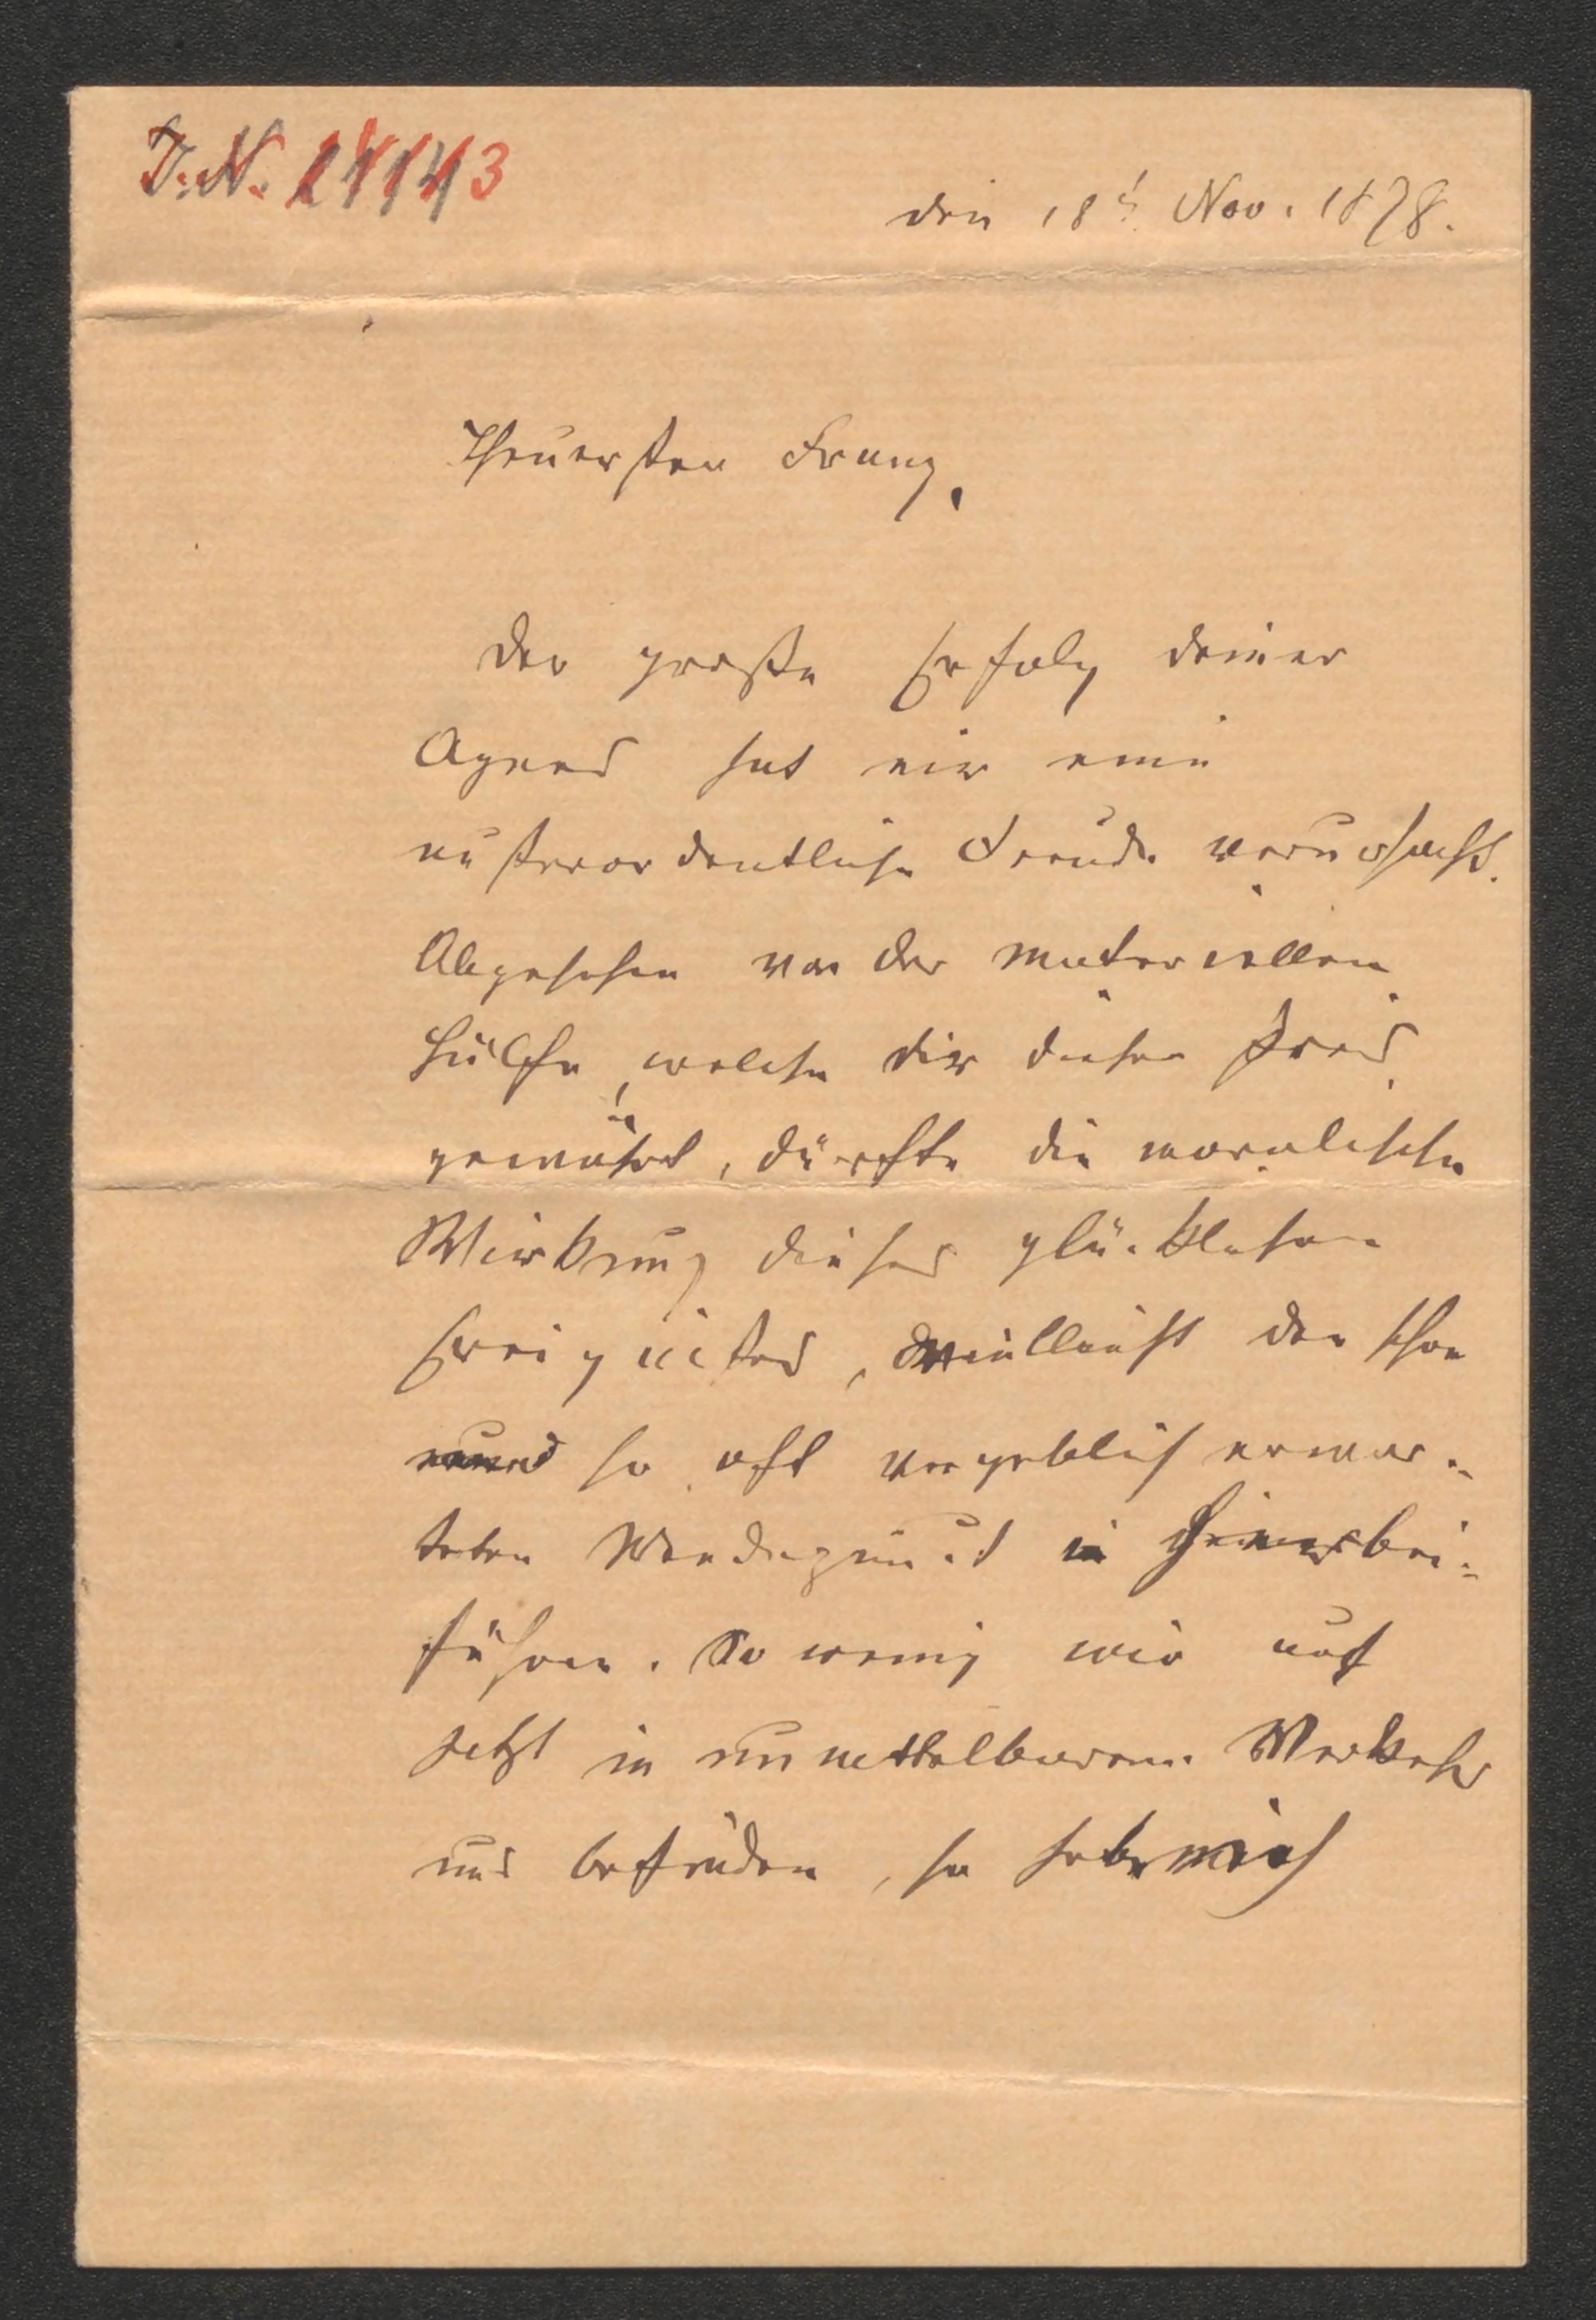 I.N. 27143
den 18t. Nov. 1878.
Theuerster Franz,
Der große Erfolg deiner
Agnes hat mir eine
außerordentliche Freude verursacht.
Abgesehen von der materiellen
Hülfe, welche dir dieser Preis
gewährt, dürfte die moralische
Wirkung dieses glücklichen
Ereignisses, vielleicht den schon
so oft vergeblich erwar-
teten Wendepunct in bei-
führen. So wenig wir auch
jetzt in unmittelbarem Verkehr
uns befinden, so habe mich